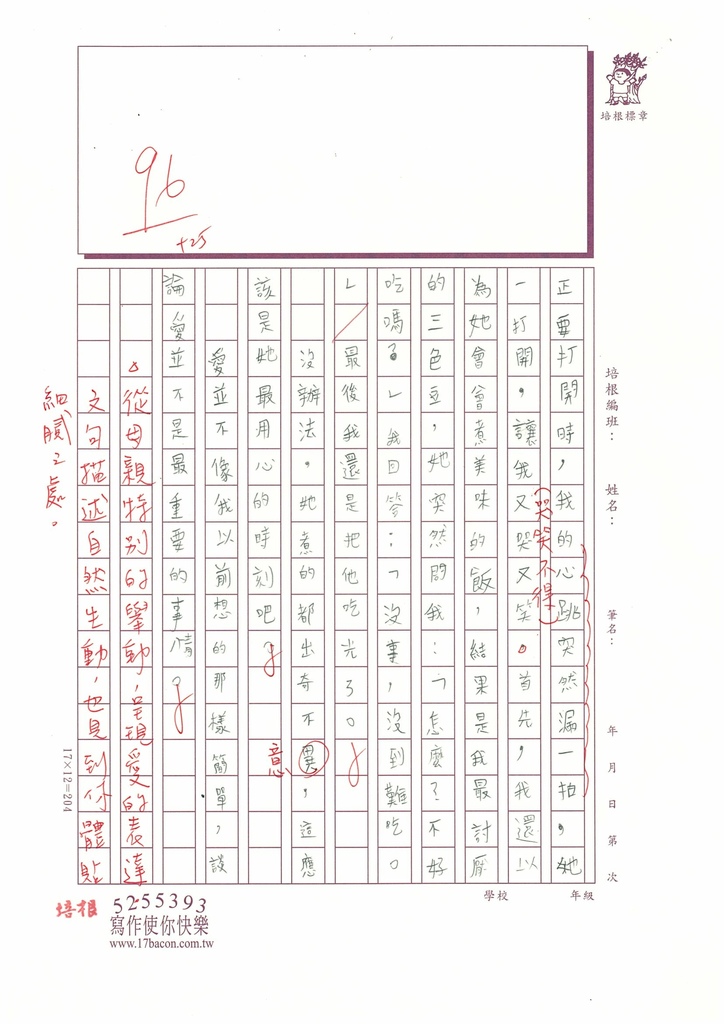 96
+25
培根標章
培根編班：　姓名：　筆名：　年　月　日　第　次
正要打開時，我的心跳突然漏一拍，她
一打開，讓我又哭又笑。首先，我還以
(哭笑不得)
為她會會煮美味的飯，結果是我最討厭
的三色豆，她突然問我：「怎麼？不好
吃嗎？」我回答：「沒事，沒到難吃。
」最後我還是把他吃光了。
沒辦法，她煮的都出奇不異，這應
意
該是她最用心的時刻吧
愛並不像我以前想的那樣簡單，談
論愛並不是最重要的事情
從母親特別的舉動，呈現愛的表達
文句描述自然生動，也見到你體貼
細膩之處。
17×12=204
學校　年級
培根
5255393
寫作使你快樂
www.17bacon.com.tw